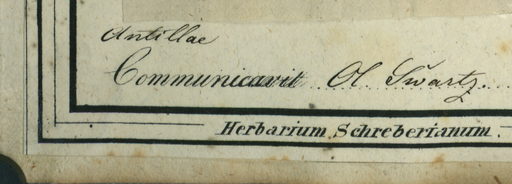 Antillae
Communicavit Ol Swartz.
Herbarium Schreberianum.